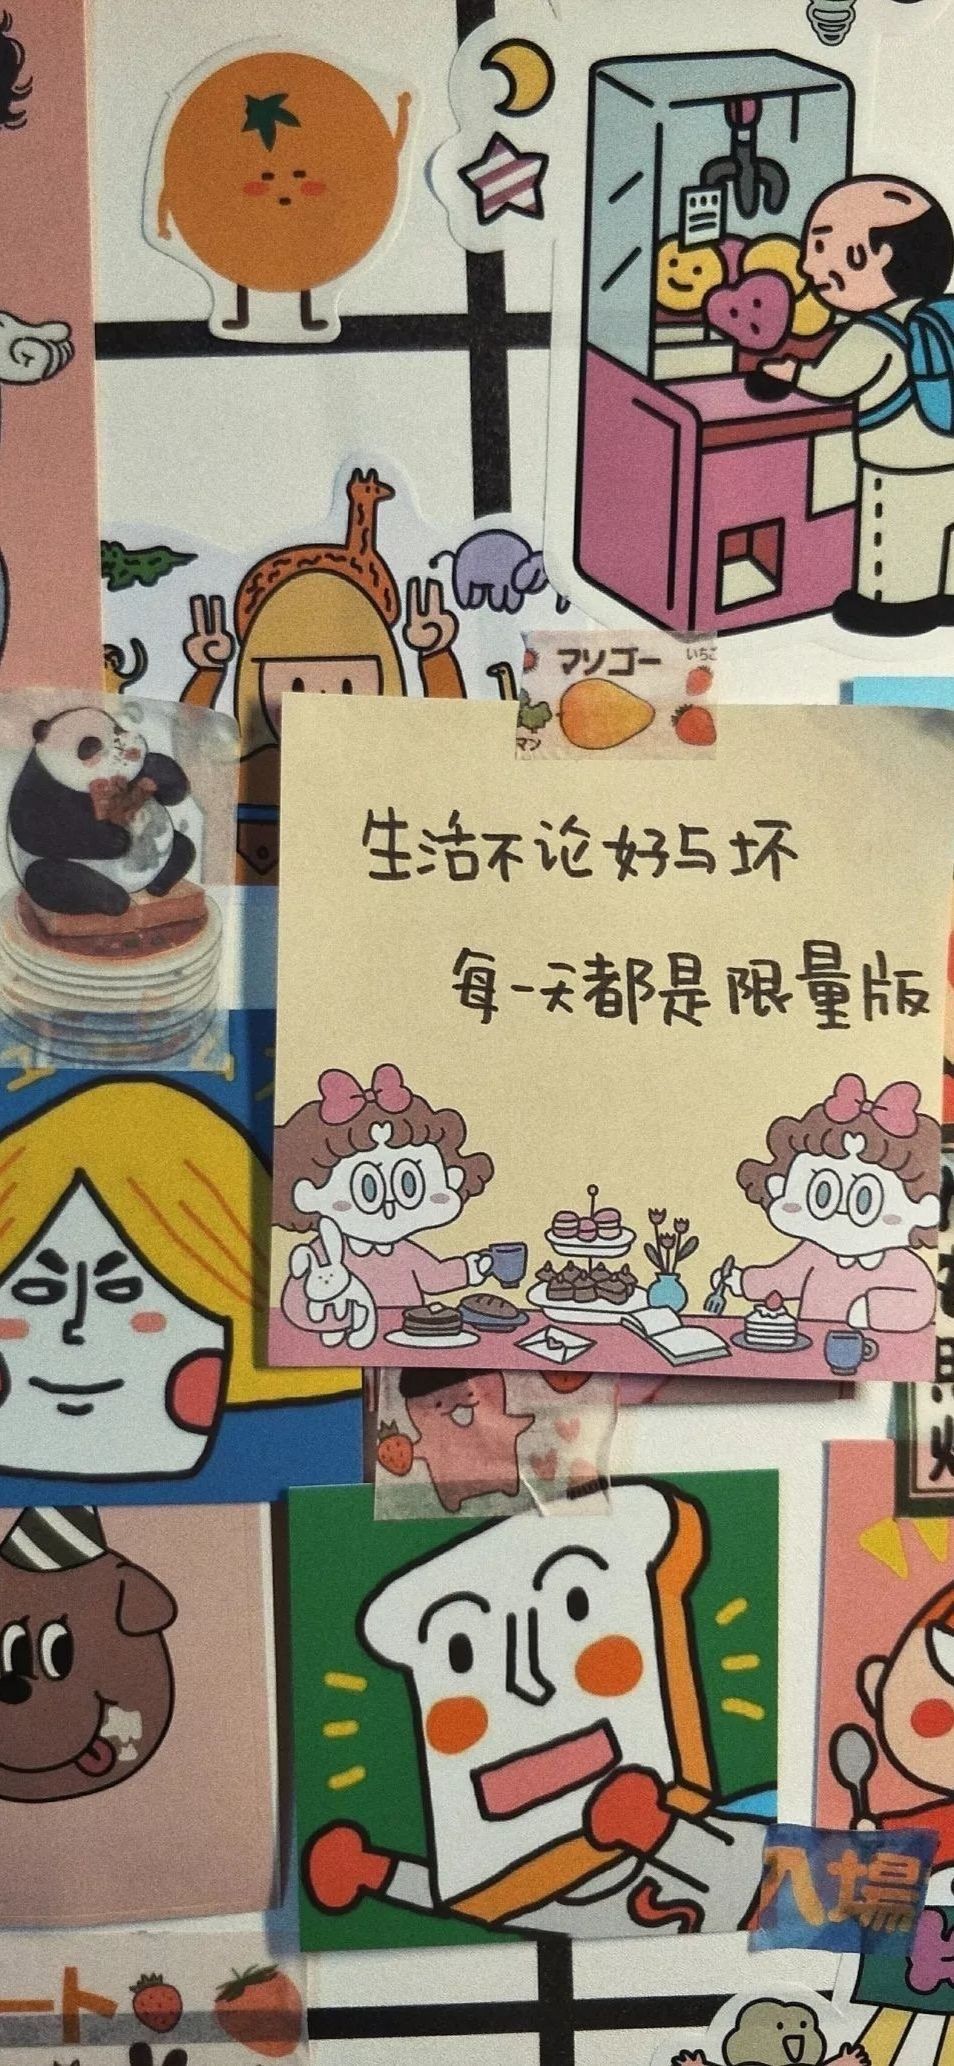 マンゴー
いちご
マン
生活不论好与坏
每一天都是限量版
入場
ート